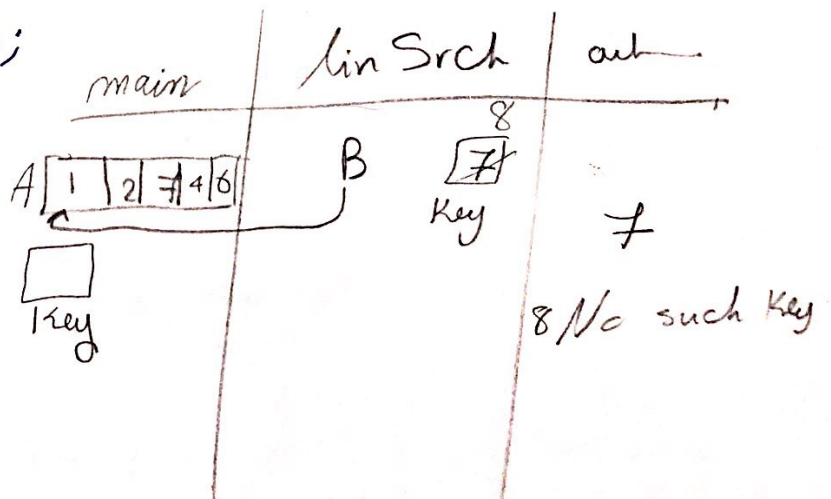 ;
main lin Srch out
8
A 1 2 7 4 6 B 7
Key 7
Key
8 No such Key